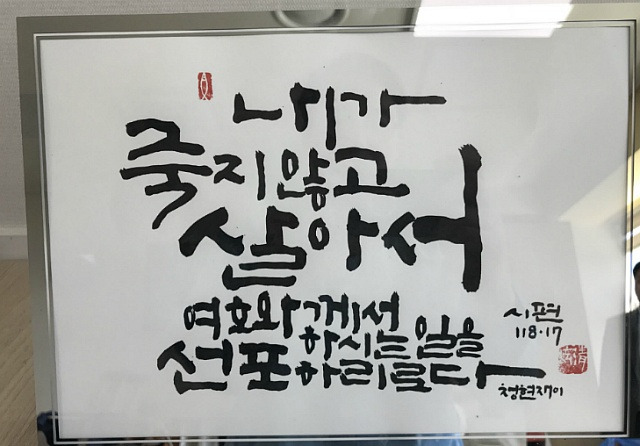 내가
죽지않고
살아서
여호와께서
하시는 일을
선포하리로다
시편
118·17
청현재이